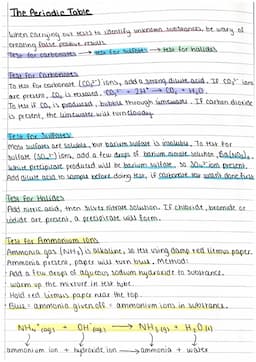 The Periodic Table
When carrying out tests to identify unknown substances, be wary of
creating false positive results.
Test for carbonates → test for sulfates → test for halides
Test for Carbonates
To test for carbonate (CO₃²⁻) ions, add a strong dilute acid. If CO₃²⁻ ions
are present, CO₂ is released. CO₃²⁻ + 2H⁺ → CO₂ + H₂O
To test if CO₂ is produced, bubble through limewater. If carbon dioxide
is present, the limewater will turn cloudy.
Test for Sulfates
Most sulfates are soluble, but barium sulfate is insoluble. To test for
sulfate (SO₄²⁻) ions, add a few drops of barium nitrate solution, Ba(NO₃)₂.
White precipitate produced will be barium sulfate, so SO₄²⁻ ions present.
Add dilute acid to sample before doing test, if carbonate test wasn't done first
Test for Halides
Add nitric acid, then silver nitrate solution. If chloride, bromide or
iodide are present, a precipitate will form.
Test for Ammonium Ions
Ammonia gas (NH₃) is alkaline, so test using damp red litmus paper.
Ammonia present, paper will turn blue. Method:
- Add a few drops of aqueous sodium hydroxide to substance.
- warm up the mixture in test tube.
- Hold red litmus paper near the top.
- Blue = ammonia given off = ammonium ions in substance.
NH₄⁺(aq) + OH⁻(aq) → NH₃(g) + H₂O(l)
ammonium ion + hydroxide ion → ammonia + water